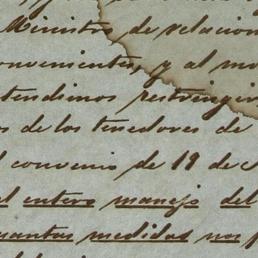 Ministro de relacion
onvenientes, y al mo
tendimos restringir
s de los tenedores de
l convenio de 19 de
el entero manejo del
uantas medidas nos